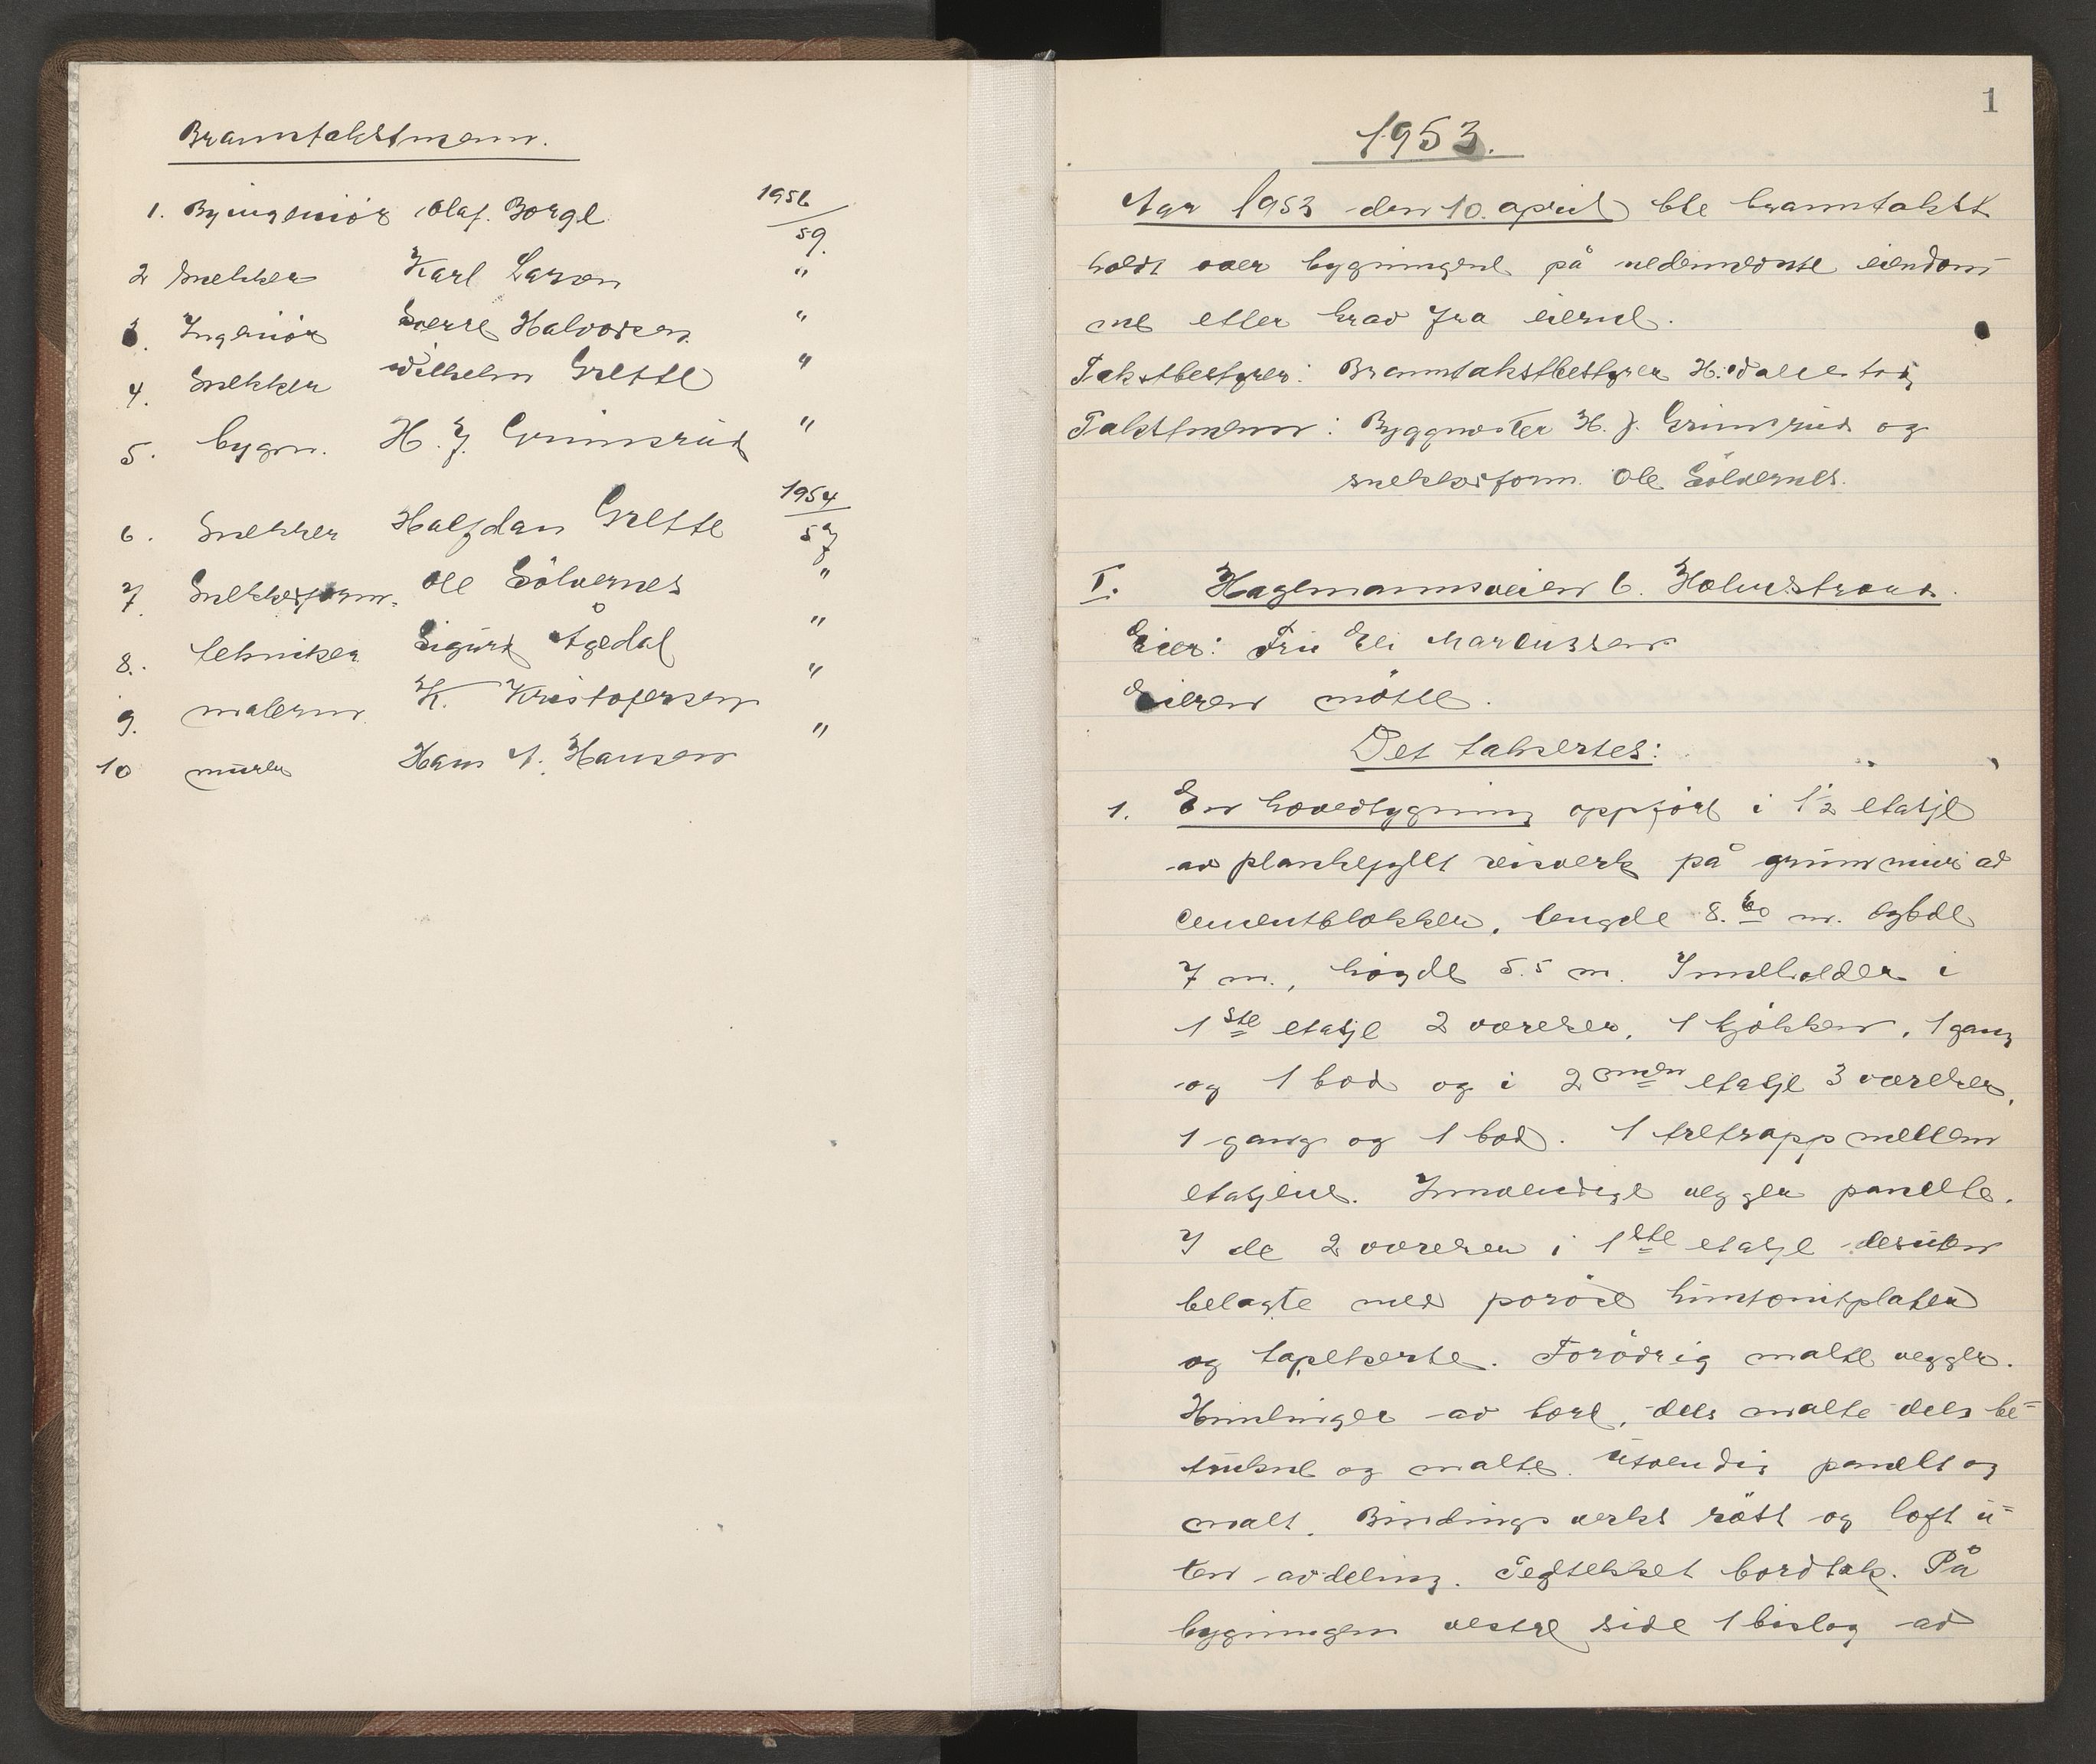 Branntakstmenn.
1. Byingeniör Olaf. Borge 1956
59.
2 Snekker Karl Larsen "
3. Ingeniör Sverre Halvorsen "
4. Snekker Wilhelm Grette "
5. bygm. H. J. Grimsrud "
1954
57
6. Snekker Halfdan Grette
7. Snekkerform. Ole Sölvernes "
8. tekniker Sigurd Ågedal "
9. malerm. K. Kristofersen "
10 murer Hans A. Hansen "
1
1953.
Aar 1953 den 10. april ble branntakst
holdt over bygningene på nedennevnte eiendom=
me etter krav fra eierne.
Takstbestyrer: Branntakstbestyrer H.
Takstmenn: Byggmester H. J. Grimsrud og
snekkerform. Ole Sölvernes.
I. Hagemannsveien 6. Holmestrand.
Eier: Fru Eli Marcussen
Eieren mötte.
Det takertes:
1. En hovedbygning oppfört i 1½ etasje
av plankefyllt reisverk på grunnmur av
cementblokker, lengde 8.60 m. bybde
7 m., høyde 5.5 m. Inneholder i
1ste etasje 2 værelser, 1 kjökken, 1 gang
og 1 bod og i 2nen etasje 3 værelser,
1 gang og 1 bod. 1 tretrapp mellem
etasjene. Innvendige vegger panelte.
I de 2 værelser i 1ste etasje desuten
belagte med poröse huntonitplater
og tapetserte. Forövrig malte vegger.
Himlinger av bord, dels malte dels be=
trukne og malte. Utvendig panelt og
malt. Bindingsverks röst og loft u=
ten avdeling. Tegltekket bordtak. På
bygningen vestre side 1 bislag av